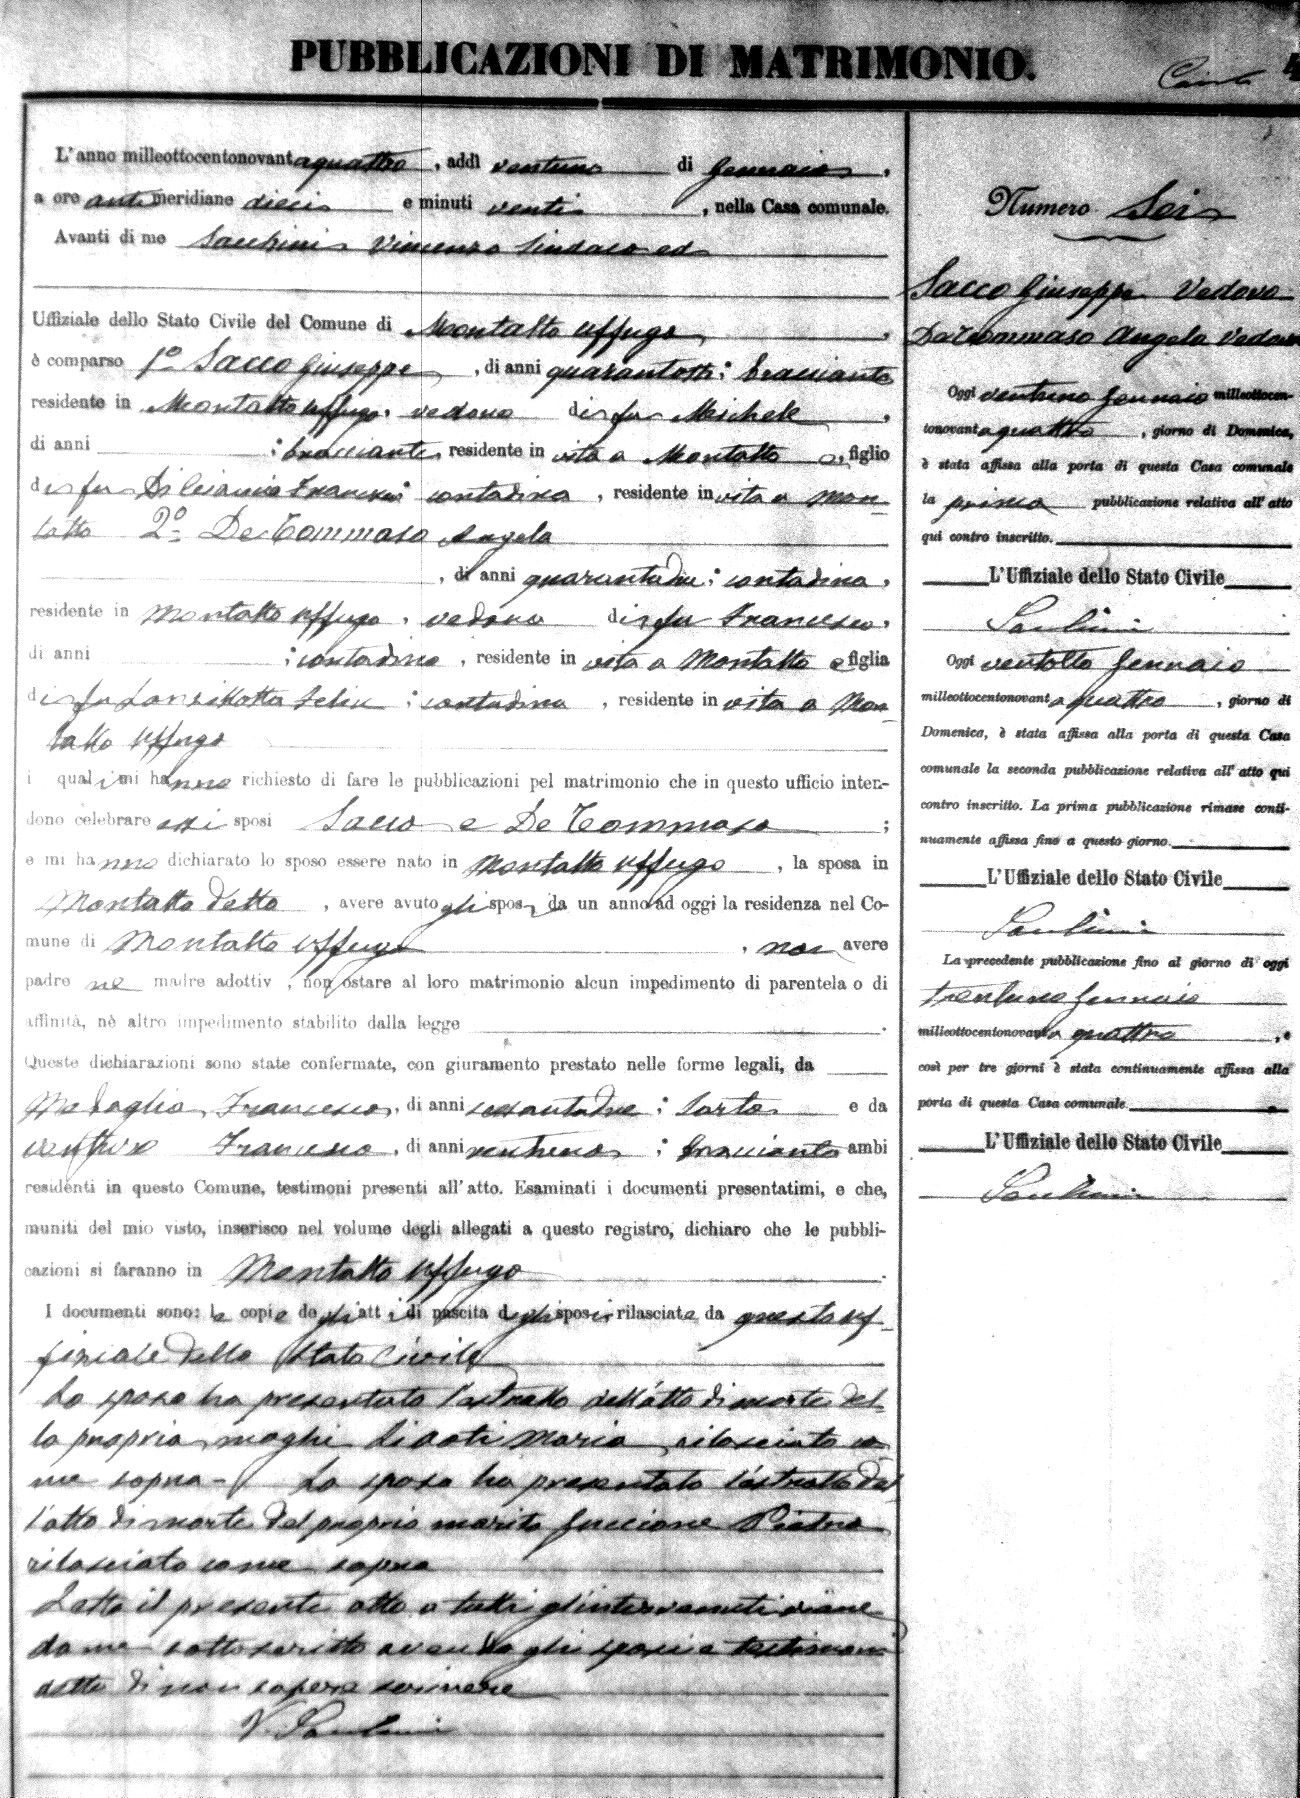 PUBBLICAZIONI DI MATRIMONIO.
L'anno milleottocentonovantaquattro, addì ventuno di Gennaio,
a ore antimeridiane dieci e minuti venti, nella Casa comunale.
Avanti di me Vincenzo Sindaco ed
Uffiziale dello Stato Civile del Comune di Montalto Uffugo,
è comparso 1º Sacco Giuseppe, di anni quarantotto; bracciante
residente in Montalto Uffugo, vedovo di fu Michele,
di anni ; bracciante, residente in vita a Montalto, figlio
di fu Francesca contadina, residente in vita a Mon-
talto 2º De Tommaso Angela
, di anni ; contadina,
residente in Montalto Uffugo, vedova di fu Francesco,
di anni ; contadino, residente in vita a Montalto e figlia
di fu Lanzillotta ; contadina, residente in vita a Mon-
talto Uffugo
i quali mi hanno richiesto di fare le pubblicazioni pel matrimonio che in questo ufficio inten-
dono celebrare essi sposi Sacco e De Tommaso ;
e mi hanno dichiarato lo sposo essere nato in Montalto Uffugo, la sposa in
Montalto detto, avere avuto gli sposi da un anno ad oggi la residenza nel Co-
mune di Montalto Uffugo, non avere
padre ne madre adottiv , non ostare al loro matrimonio alcun impedimento di parentela o di
affinità, nè altro impedimento stabilito dalla legge .
Queste dichiarazioni sono state confermate, con giuramento prestato nelle forme legali, da
Medaglia Francesco, di anni ; Sarto e da
Francesco, di anni ; bracciante ambi
residenti in questo Comune, testimoni presenti all'atto. Esaminati i documenti presentatimi, e che,
muniti del mio visto, inserisco nel volume degli allegati a questo registro, dichiaro che le pubbli-
cazioni si faranno in Montalto Uffugo .
I documenti sono: le copie degli atti di nascita degli sposi rilasciate da questo Uf-
fiziale dello Stato Civile
Lo sposo ha presentato l'estratto dell'atto di morte del-
la propria moglie Maria rilasciato co
me sopra - La sposa ha presentato l'estratto del
l'atto di morte del proprio marito Guccione Pietro
rilasciato come sopra
Letto il presente atto a tutti gl'intervenuti viene
da me sottoscritto avendo gli sposi e testimoni
detto di non sapere scrivere
4
Numero Sei
Sacco Giuseppe Vedovo
De Tommaso Angela Vedova
Oggi ventuno Gennaio milleottocen-
tonovantaquattro, giorno di Domenica,
è stata affissa alla porta di questa Casa comunale
la prima pubblicazione relativa all'atto
qui contro inscritto.
L'Uffiziale dello Stato Civile
Oggi ventotto Gennaio
milleottocentonovantaquattro, giorno di
Domenica, è stata affissa alla porta di questa Casa
comunale la seconda pubblicazione relativa all'atto qui
contro inscritto. La prima pubblicazione rimase conti-
nuamente affissa fino a questo giorno.
L'Uffiziale dello Stato Civile
La precedente pubblicazione fino al giorno di oggi
trentuno Gennaio
milleottocentonovantaquattro, e
così per tre giorni è stata continuamente affissa alla
porta di questa Casa comunale
L'Uffiziale dello Stato Civile